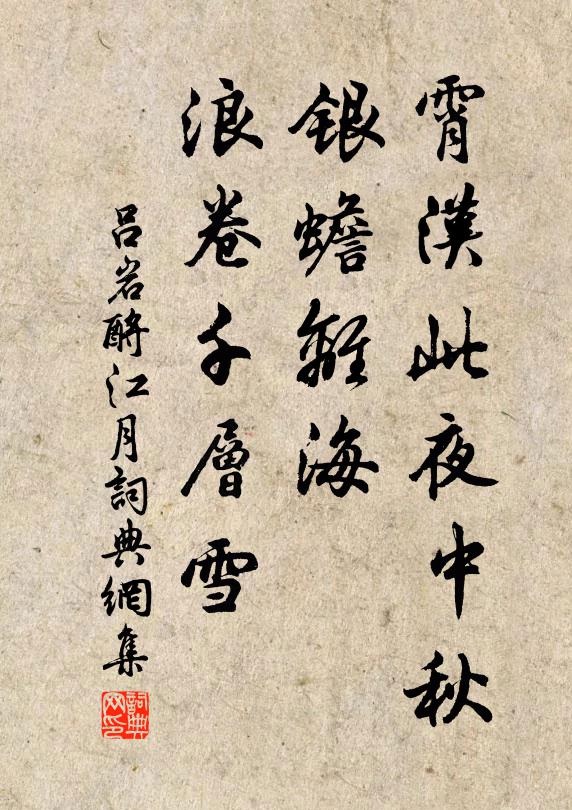 霄漢此夜中秋
銀蟾離海
浪卷千層雪
呂岩酹江月詞典網集
詞典网印